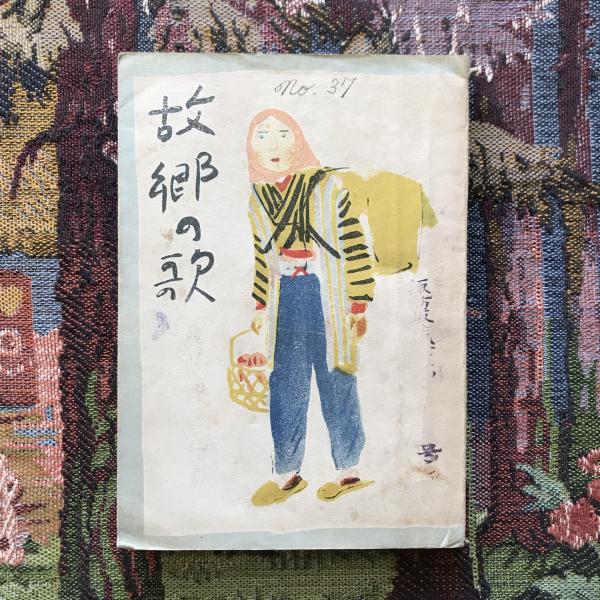 No. 37
故郷の歌
号